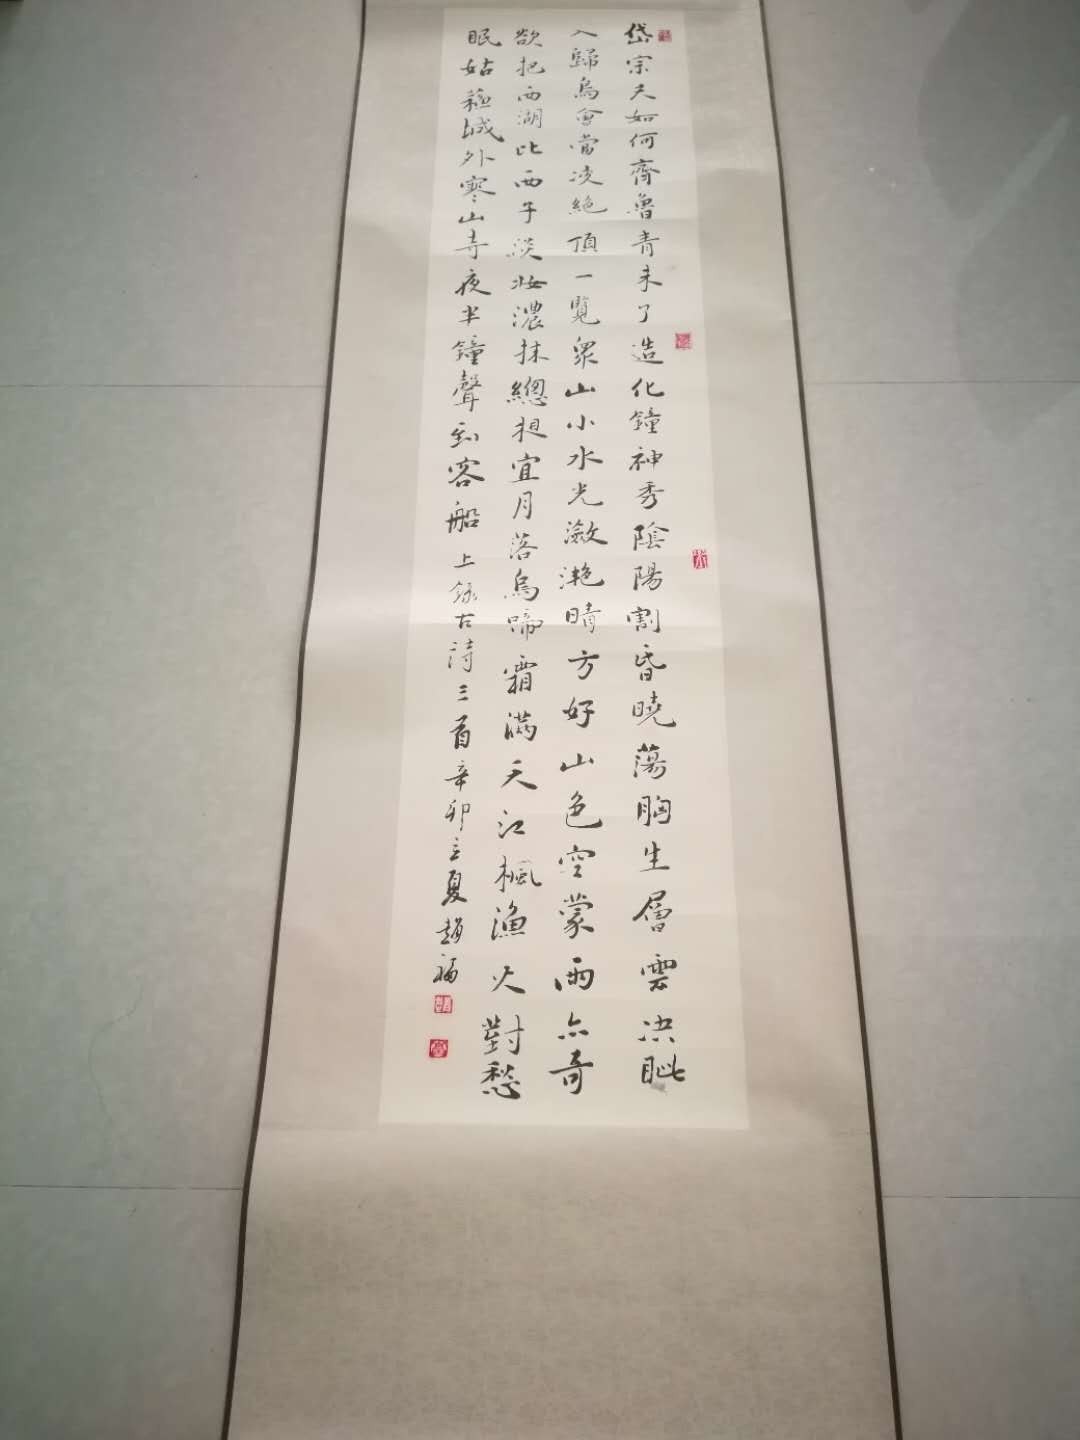 岱宗夫如何齊魯青未了造化鐘神秀陰陽割昏曉蕩胸生層雲决眦
入歸鳥會當凌絕頂一覽衆山小水光瀲灩晴方好山色空蒙雨亦奇
欲把西湖比西子淡妝濃抹總相宜月落烏啼霜滿天江楓漁火對愁
眠姑蘇城外寒山寺夜半鐘聲到客船上錄古詩三首辛卯立夏趙福